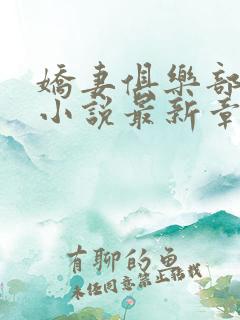 嬌妻俱樂部
小說最新章
有聊的魚
未经同意禁止转载